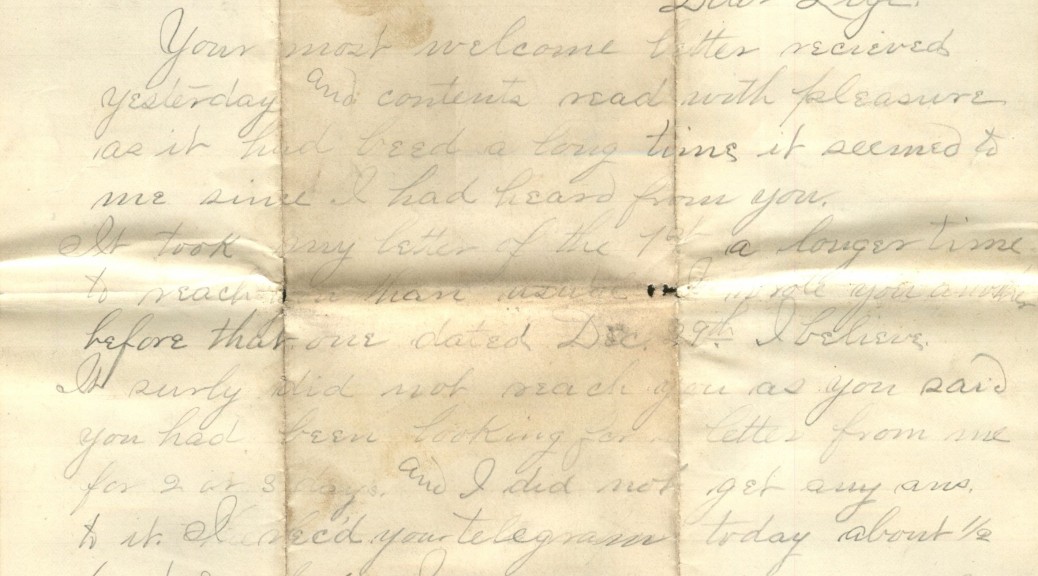 Dear
Your most welcome letter recieved
yesterday and contents read with pleasure
as it had beed a long time it seemed to
me since I had heard from you.
It took my letter of the 1st a longer time
to reach than usual I wrote you another
before that one dated Dec. 29th I believe.
It surly did not reach you as you said
you had been looking for letter from me
for 2 or 3 days. and I did not get any ans.
to it. I rec'd your telegram today about 1/2